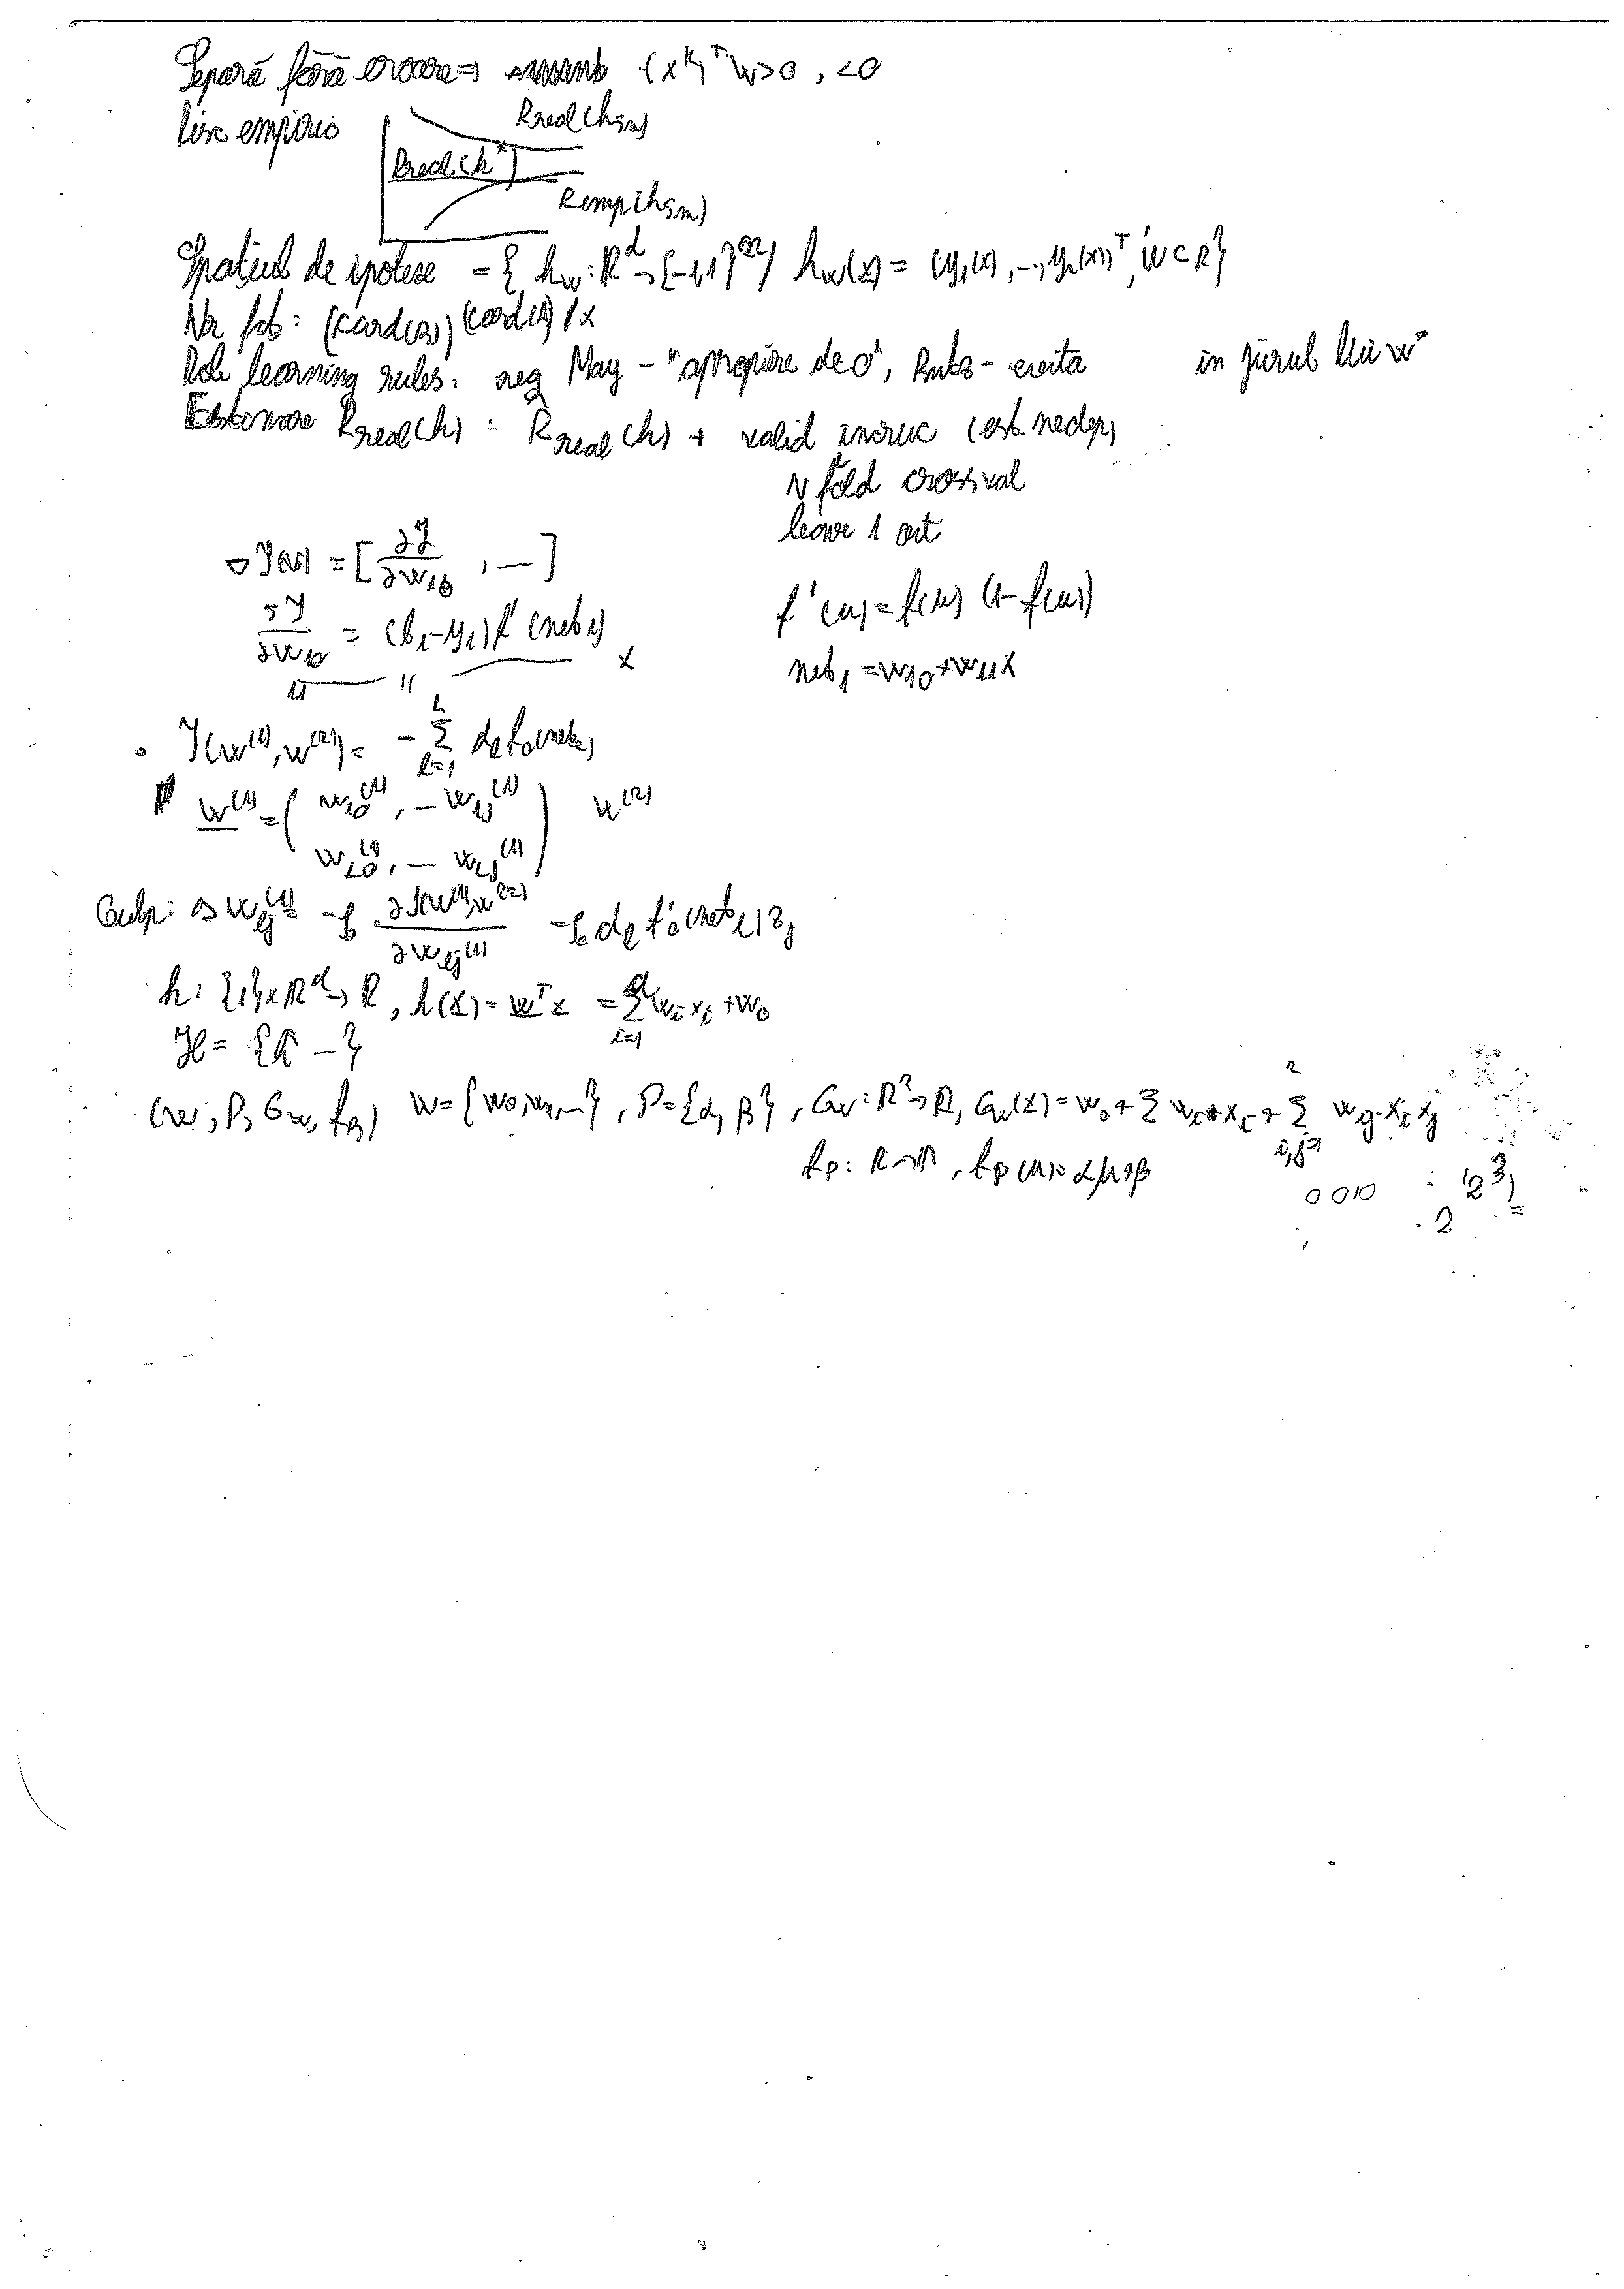 Separă fără eroare ⇒ (x^k)^T w > 0, < 0
Risc empiric
Rreal(hSm)
Rreal(h*)
Remp(hSm)
Spațiul de ipoteze = { h_w : R^d → {-1,1}^m / h_w(x) = (y_1(x), ..., y_n(x))^T, W ⊂ R}
Nr fct: (card(B))^(card(A))
learning rules: reg May - "apropiere de 0", - evita in jurul lui w*
Estimare Rreal(h) = R̂real(h) + valid încruc (est. nedepl)
N fold crossval
leave 1 out
∇J(w) = [∂J/∂w_10, ...]
∂J/∂w_10 = (t_1 - y_1) f'(net_1)
11 " x
f'(u) = f(u) (1 - f(u))
net_1 = w_10 + w_11 x
J(w^(1), w^(2)) = - Σ_{l=1}^{L} d_l f_o(net_l)
w^(1) = ( w_10^(1), ... w_1J^(1)
w_L0^(1), ... w_LJ^(1) ) w^(2)
∆w_lj^(1) = -ρ ∂J(w^(1), w^(2)) / ∂w_lj^(1) - ρ_o d_l f'_o(net_l) z_j
h: {1} × R^d → R, h(x) = w^T x = Σ_{i=1}^{d} w_i x_i + w_0
H = {h ...}
(W, P, G_w, f_p) W = {w_0, w_1, ...}, P = {α, β}, G_w : R^2 → R, G_w(x) = w_0 + Σ w_i * x_i + Σ_{i,j=1}^{2} w_ij · x_i x_j
f_p : R → R, f_p(u) = αu + β
0 0 1 0 (2^3) =
2